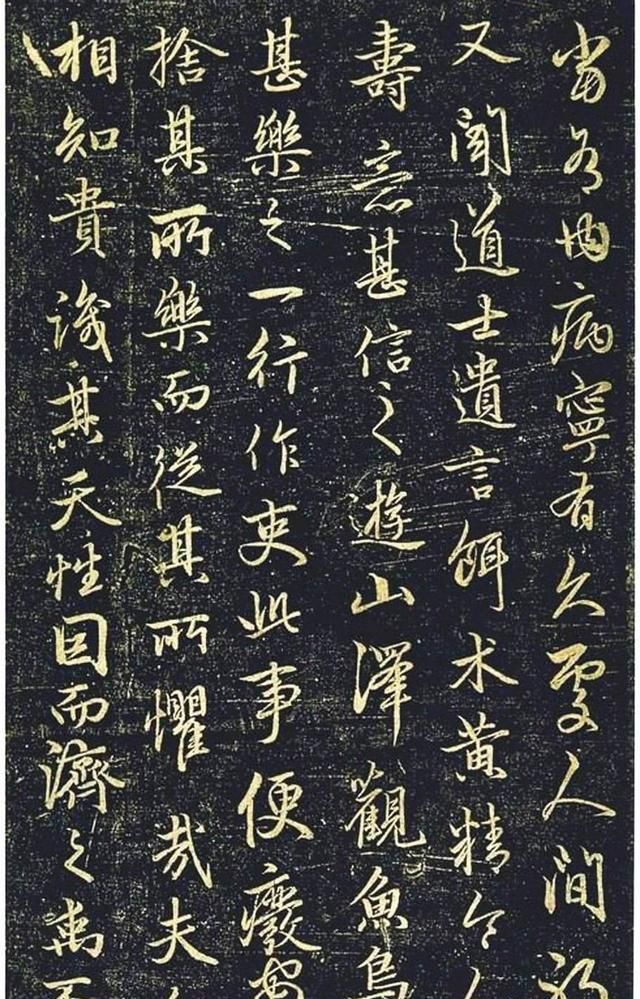 當有内病寧有久處人間
又聞道士遺言餌术黃精令人
壽意甚信之遊山澤觀魚鳥
甚樂之一行作吏此事便廢安
捨其所樂而從其所懼哉夫人
相知貴識其天性因而濟之禹不